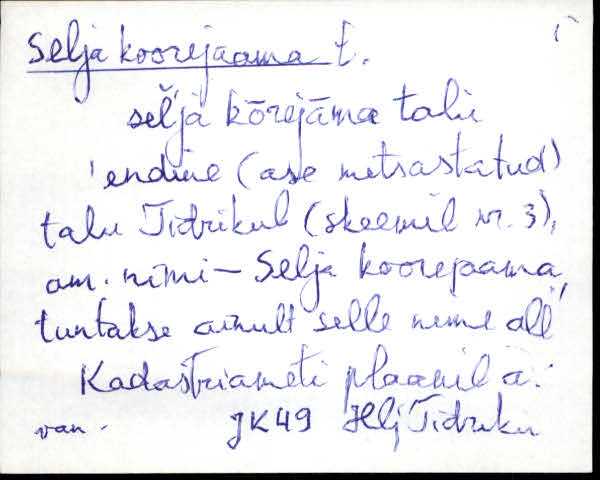 Selja koorejaama t.
selja kōrejāma talu
endine (ase metsastatud)
talu Tidrikul (skeemil nr. 3),
am. nimi – Selja koorejaama,
tuntakse ainult selle nime all
Kadastriameti plaanil
JK49 Tidriku
van.